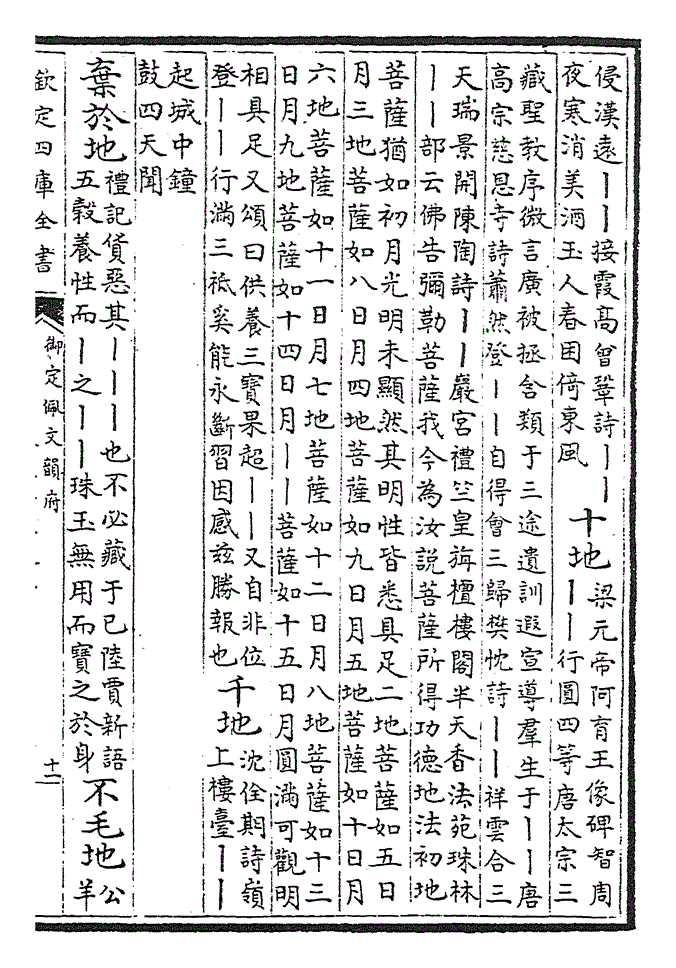 侵漢遠丨丨接霞高曾鞏詩丨丨
夜寒消美酒玉人春困倚東風
十地
梁元帝阿育王像碑智周
丨丨行圓四等唐太宗三
藏聖教序微言廣被拯含類于三途遺訓遐宣導羣生于丨丨唐
高宗慈恩寺詩蕭然登丨丨自得會三歸樊忱詩丨丨祥雲合三
天瑞景開陳陶詩丨丨嚴宮禮竺皇旃檀樓閣半天香法苑珠林
丨丨部云佛告彌勒菩薩我今為汝說菩薩所得功德地法初地
菩薩猶如初月光明未顯然其明性皆悉具足二地菩薩如五日
月三地菩薩如八日月四地菩薩如九日月五地菩薩如十日月
六地菩薩如十一日月七地菩薩如十二日月八地菩薩如十三
日月九地菩薩如十四日月丨丨菩薩如十五日月圓滿可觀明
相具足又頌曰供養三寶果超丨丨又自非位
登丨丨行滿三祇奚能永斷習因感茲勝報也
千地
沈佺期詩嶺
上樓臺丨丨
起城中鐘
鼓四天聞
棄於地
禮記貨惡其丨丨丨也不必藏于已陸賈新語
五穀養性而丨之丨丨珠玉無用而寶之於身
不毛地
公
羊
欽定四庫全書
御定佩文韻府
十一